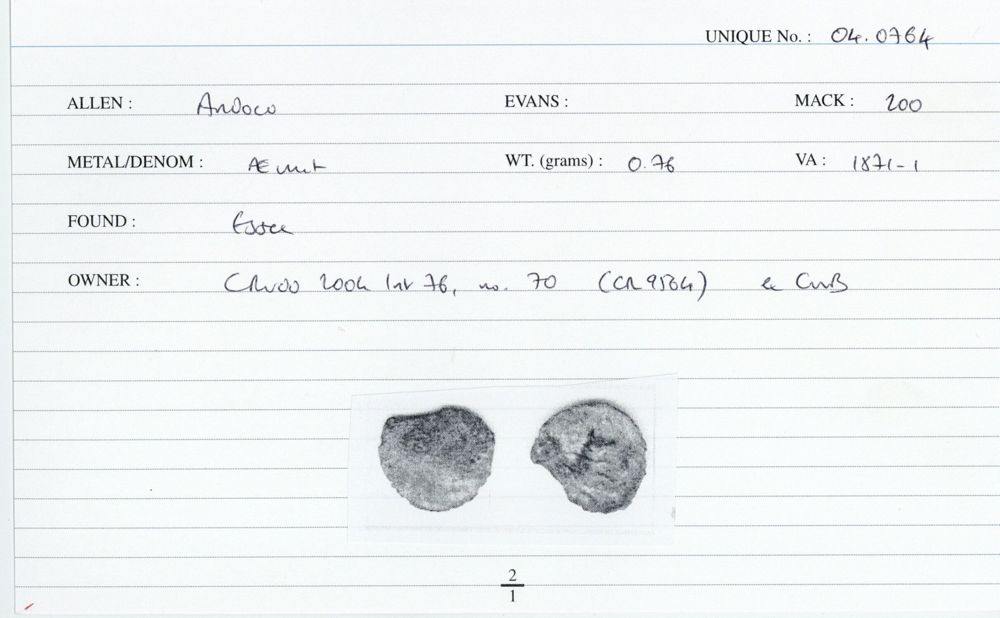 UNIQUE No. : 04.0764
ALLEN : Andoco EVANS : MACK : 200
METAL/DENOM : Æ unit WT. (grams) : 0.76 VA : 1871-1
FOUND : Essex
OWNER : CRuoo 2004 list 76, no. 70 (CR 9564) ex CNB
2
1